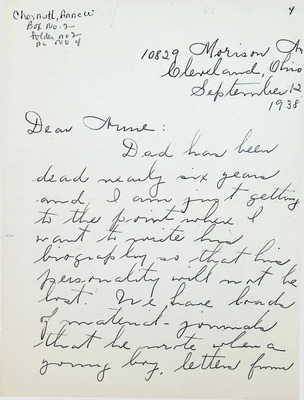 Chesnutt, Anne W
Box No-2
folder no 2
4
10829 Morison A
Cleveland, Ohio
September 12
1938
Dear Anne:
Dad has been
dead nearly six years
and I am just getting
to the point where I
want to write his
biography so that his
personality will not be
lost. We have loads
of material - journals
that he wrote when a
young boy, letters from